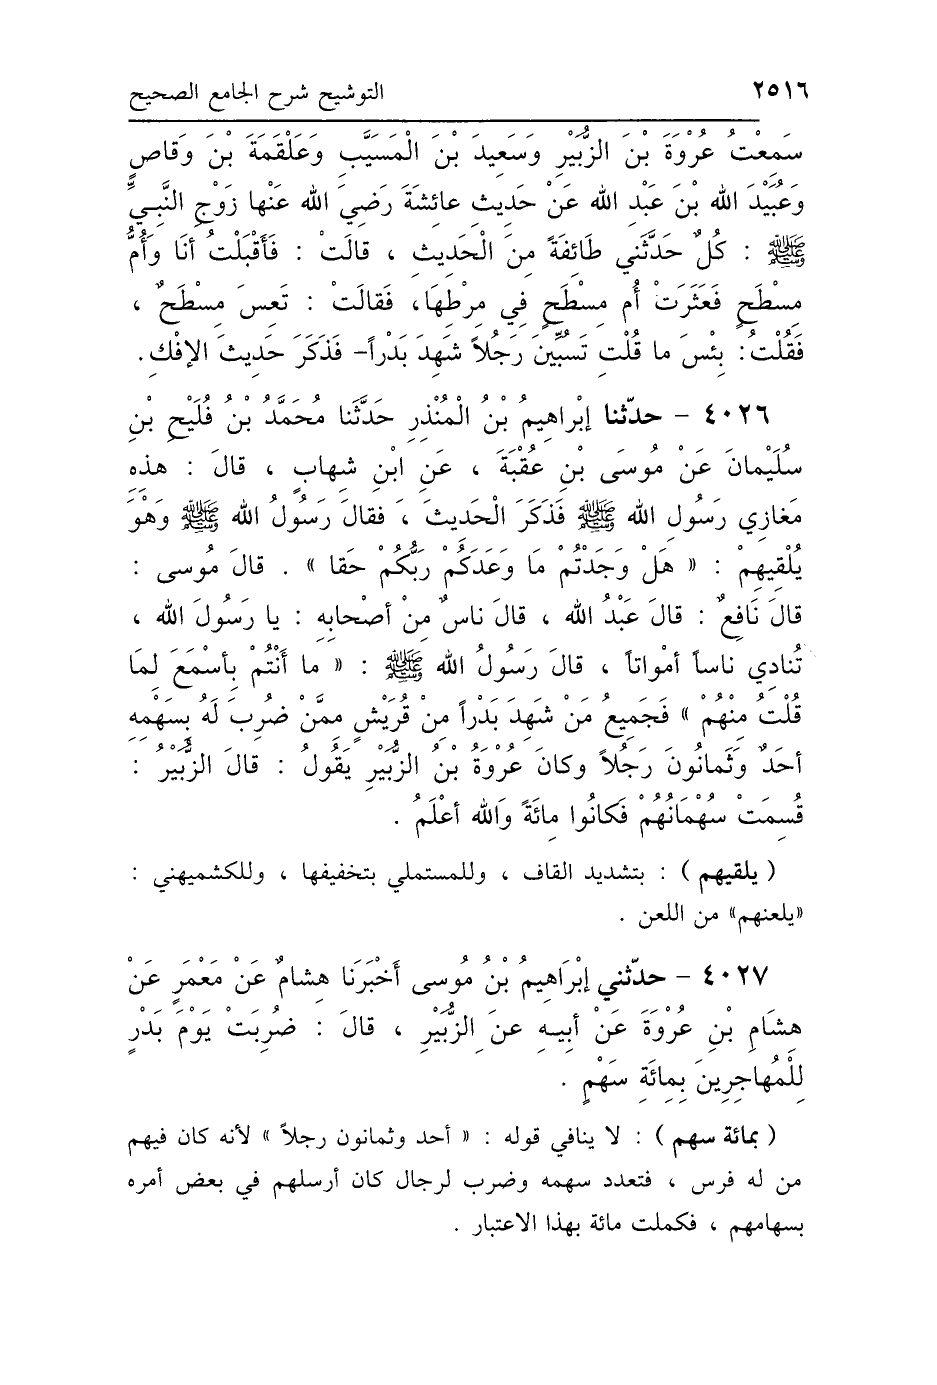 ٢٥١٦ التوشيح شرح الجامع الصحيح
سَمِعْتُ عُرْوَةَ بْنَ الزُّبَيْرِ وَسَعِيدَ بْنَ الْمَسَيَّبِ وَعَلْقَمَةَ بْنَ وَقاصٍ
وَعُبَيْدَ اللهِ بْنَ عَبْدِ اللهِ عَنْ حَدِيثِ عائشَةَ رَضِيَ اللهُ عَنْها زَوْجِ النَّبِيِّ
ﷺ : كُلٌ حَدَّثَنِي طَائفَةً مِنَ الْحَدِيثِ ، قالَتْ : فَأَقْبَلْتُ أنَا وَأُمُّ
مِسْطَحٍ فَعَثَرَتْ أُم مِسْطَحٍ فِي مِرْطِهَا، فَقالَتْ : تَعِسَ مِسْطَحٌ ،
فَقُلْتُ: بِئْسَ ما قُلْتِ تَسُبِّينَ رَجُلاً شَهِدَ بَدْراً– فَذَكَرَ حَدِيثَ الإفْكِ.
٤٠٢٦ – حدّثنا إبْراهِيمُ بْنُ الْمُنْذِرِ حَدَّثَنا مُحَمَّدُ بْنُ فُلَيْحِ بْنِ
سُلَيْمانَ عَنْ مُوسَى بْنِ عُقْبَةَ ، عَنِ ابْنِ شهابٍ ، قالَ : هذِهِ
مَغازِي رَسُولِ اللهِ ﷺ فَذَكَرَ الْحَدِيثَ ، فقالَ رَسُولُ اللهِ ﷺ وَهْوَ
يُلْقِيهِمْ : « هَلْ وَجَدْتُمْ مَا وَعَدَكُمْ رَبُّكُمْ حَقا » . قالَ مُوسى :
قالَ نَافِعٌ : قالَ عَبْدُ اللهِ ، قالَ ناسٌ مِنْ أصْحابِهِ : يا رَسُولَ اللهِ ،
تُنادِي ناساً أمْواتاً ، قالَ رَسُولُ اللهِ ﷺ : « ما أَنْتُمْ بِأسْمَعَ لِمَا
قُلْتُ مِنْهُمْ » فَجَمِيعُ مَنْ شَهِدَ بَدْراً مِنْ قُرَيْشٍ مِمَّنْ ضُرِبَ لَهُ بِسَهْمِهِ
أحَدٌ وَثَمانُونَ رَجُلاً وكانَ عُرْوَةُ بْنُ الزُّبَيْرِ يَقُولُ : قالَ الزُّبَيْرُ :
قُسِمَتْ سُهْمَانُهُمْ فَكانُوا مِائَةً وَالله أعْلَمُ .
( يلقيهم ) : بتشديد القاف ، وللمستملي بتخفيفها ، وللكشميهني :
«يلعنهم» من اللعن .
٤٠٢٧ – حدّثني إبْرَاهِيمُ بْنُ مُوسى أَخْبَرَنَا هِشامٌ عَنْ مَعْمَرٍ عَنْ
هِشَامِ بْنِ عُرْوَةَ عَنْ أبِيهِ عنَ الزُّبَيْرِ ، قالَ : ضُرِبَتْ يَوْمَ بَدْرٍ
لِلْمُهاجِرِينَ بِمِائَةِ سَهْمٍ .
( بمائة سهم ) : لا ينافي قوله : « أحد وثمانون رجلاً » لأنه كان فيهم
من له فرس ، فتعدد سهمه وضرب لرجال كان أرسلهم في بعض أمره
بسهامهم ، فكملت مائة بهذا الاعتبار .